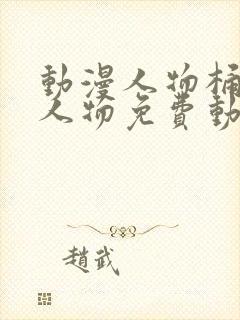 動漫人物桶
人物免費動
趙武